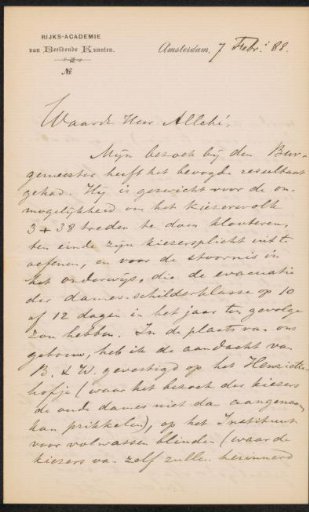 RIJKS-ACADEMIE
van Beeldende Kunsten.
No
Amsterdam, 7 Febr: 88.
Waarde Heer Allebé,
Mijn bezoek bij den Bur-
gemeester heeft het beoogde resultaat
gehad. Hij is gezwicht voor de on-
mogelijkheid om het kiezersvolk
3 + 38 treden te doen klouteren,
ten einde zijn kiezersplicht uit te
oefenen, en voor de stoornis in
het onderwijs, die de evacuatie
der dames-schilderklasse op 10
of 12 dagen in het jaar ten gevolge
zou hebben. In de plaats van ons
gebouw, heb ik de aandacht van
B. & W. gevestigd op het Henriette
hofje (waar het bezoek der kiezers
de oude dames niet dan aangenaam
kan prikkelen), op het Instituut
voor volwassen blinden (waar de
kiezers van zelf zullen herinnerd